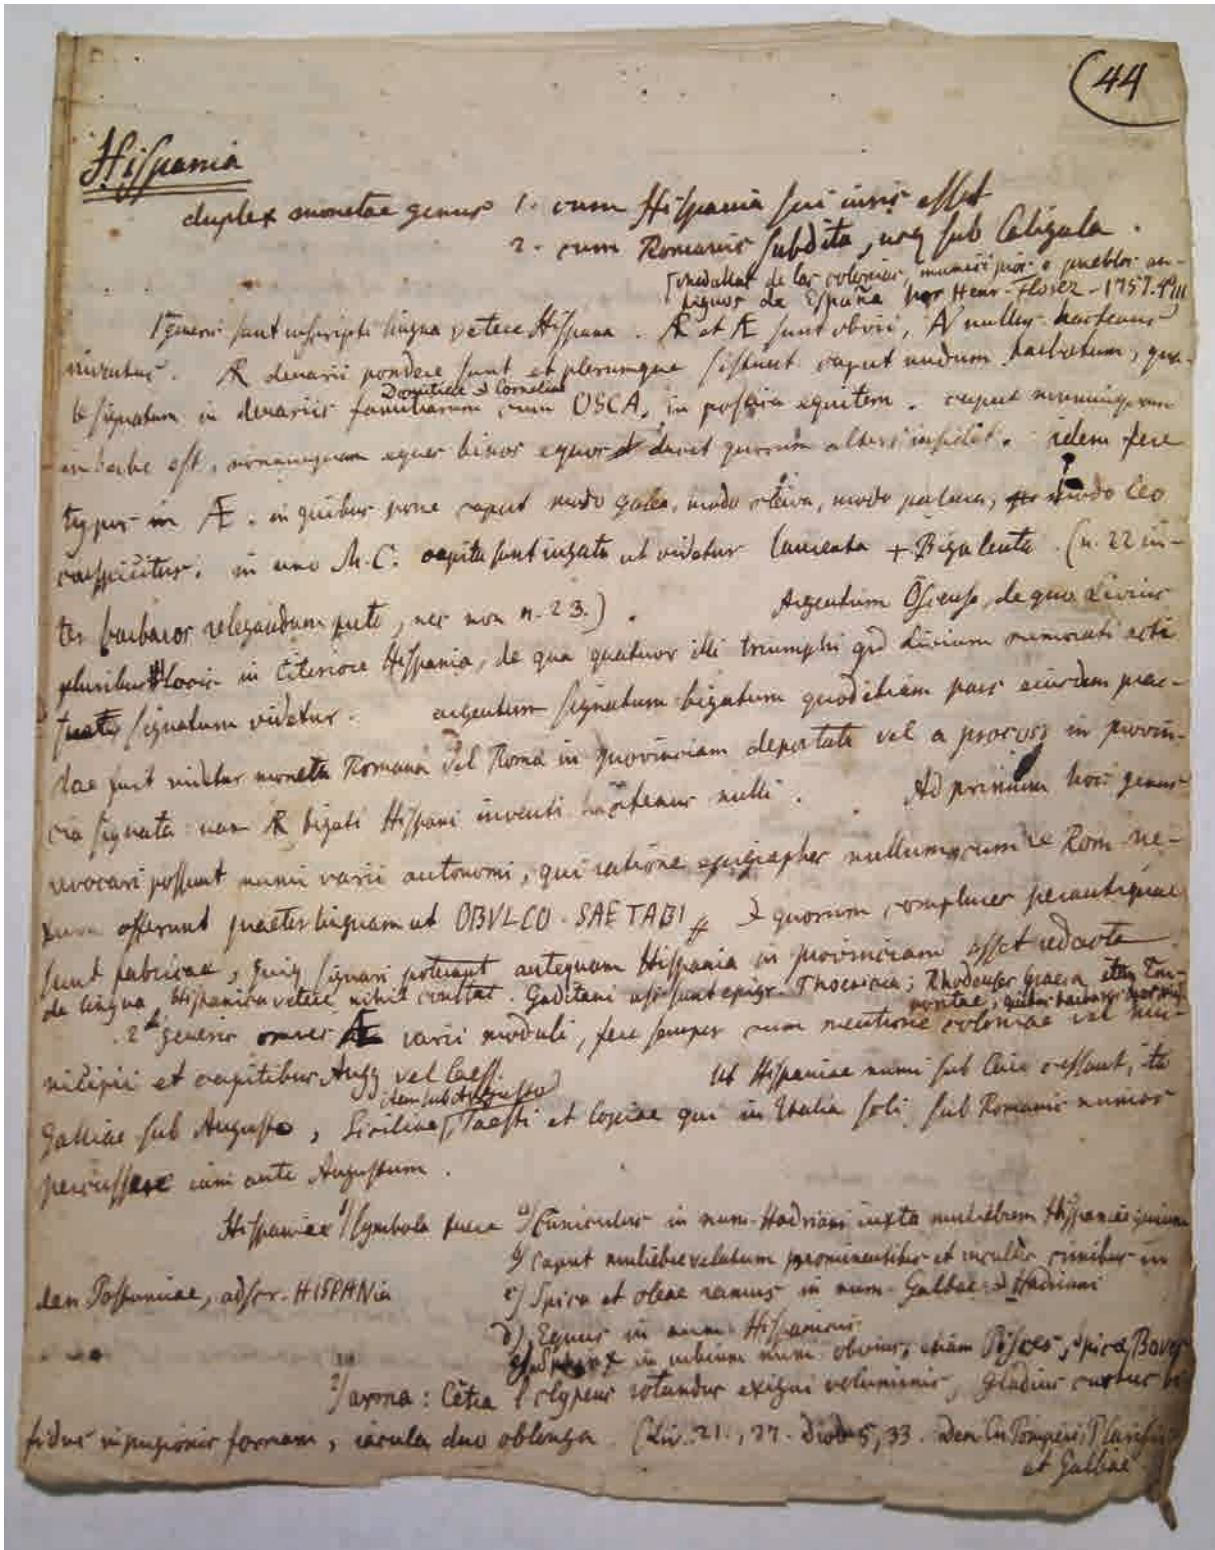 (44
Hispania
duplex monetae genus 1. cum Hispania sui iuris esset
2. cum Romanis subdita, usq sub Caligula.
medallas de las colonias, municipios o pueblos an-
tiguos de España por Henr. Florez - 1757. 4
1 generis sunt inscripti lingua vetere Hispana. AR et Æ sunt obvii, AV nullus hactenus
inventus. AR denarii pondere sunt et plerumque sistunt caput nudum barbatum, qua-
Domitiae et Corneliae
le signatum in denariis familiarum cum OSCA, in postica equitem. caput nonnunquam
imberbe est, nonnunquam eques binos equos ducit quorum alteri insidet. idem fere
typus in Æ. in quibus pone caput modo galea, modo stiva, modo palma, modo leo
conspicitur. in uno M.C. capita sunt iugata ut videtur laureata + Bigaleata. (n. 22 in-
ter barbaros relegandum puto, nec non n. 23.) Argentum Oscense, de quo Livius
pluribus locis in Citeriore Hispania, de qua quatuor illi triumphi apud Livium memorati acti
signatum videtur. argentum signatum bigatum quod etiam pars eiusdem prae-
dae fuit videtur moneta Romana vel Roma in provinciam deportata vel a procoss in provin-
cia signata nam AR bigati Hispani inventi hactenus nulli. Ad primum hoc genus
revocari possunt numi varii autonomi, qui ratione epigraphes nullum cum re Rom. ne-
xum offerunt praeter linguam ut OBVLCO - SAETABI et quorum complures perantiquae
sunt fabricae, quiq signari potuerunt antequam Hispania in provinciam esset redacta
de lingua Hispanica vetere nihil constat. Gaditani usi sunt epigr. Phoenicia; Rhodenses Graeca item Em-
poritae,
2di generis omnes Æ varii moduli, fere semper cum mentione coloniae vel mu-
nicipii et capitibus Augg vel Caess. ut Hispaniae numi sub Caio cessant, ita
item sub Augusto
Galliae sub Augusto, Siciliae, Paesti et Copiae qui in Italia soli sub Romanis numos
percussere iam ante Augustum.
Hispaniae 1/ Symbola fuere a/ Cuniculus in num. Hadriani iuxta muliebrem Hispaniae genium
b/ Caput muliebre velatum prominentibus et incultis crinibus in
den. Postumiae, adscr. HISPANia
c/ Spica et oleae ramus in num. Galbae et Hadriani
d/ Equus in num. Hispanicis
e/ Sphinx in urbium num. obvius, etiam Pisces, Spica, Boves
2/ arma: Cetra / clypeus rotundus exigui voluminis, Gladius curtus bi-
fidus in pugionis formam, iacula duo oblonga. (Liv. 21., 27. Diod 5, 33. Den Cn Pompeii,
et Galbae